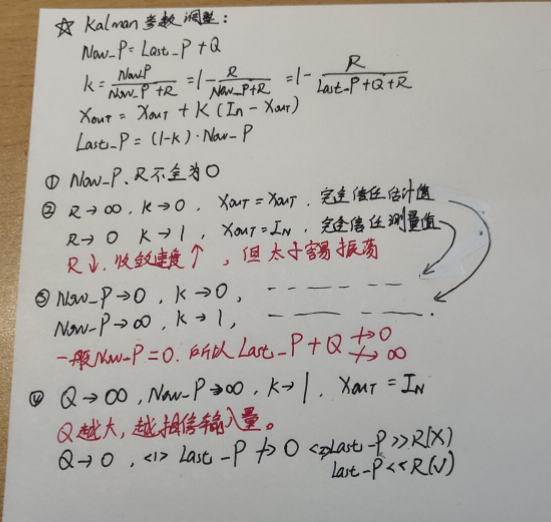 ☆ Kalman 参数调整:
Now_P = Last_P + Q
K = Now_P / (Now_P + R) = 1 - R / (Now_P + R) = 1 - R / (Last_P + Q + R)
Xout = Xout + K (In - Xout)
Last_P = (1-k)·Now_P
① Now_P、R不全为0
② R→∞, K→0, Xout = Xout, 完全信任估计值
R→0 K→1, Xout = IN, 完全信任测量值
R↓, 收敛速度↑, 但太小容易振荡
③ Now_P→0, K→0, - - - -
Now_P→∞, K→1, - - - -
一般Now_P=0, 所以 Last_P + Q ↛0
↛∞
④ Q→∞, Now_P→∞, K→1, Xout = IN
Q越大, 越相信输入量。
Q→0, <1> Last_P ↛ 0 <2> Last_P >> R(X)
Last_P << R(√)